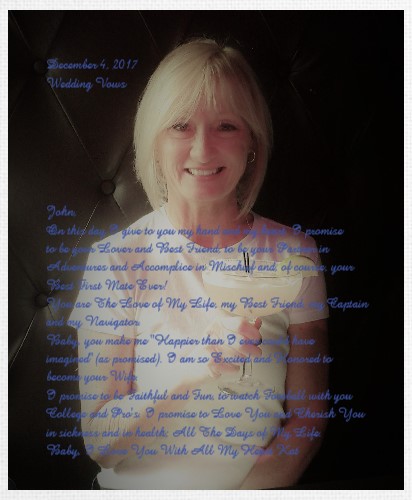 December 4, 2017
Wedding Vows
John,
On this day I give to you my hand and my heart. I promise
to be your Lover and Best Friend, to be your Partner in
Adventures and Accomplice in Mischief and, of course, your
Best First Mate Ever!
You are The Love of My Life, my Best Friend, my Captain
and my Navigator.
Baby, you make me "Happier than I ever could have
imagined" (as promised). I am so Excited and Honored to
become your Wife.
I promise to be Faithful and Fun, to watch Football with you
College and Pro's. I promise to Love You and Cherish You
in sickness and in health; All The Days of My Life
Baby, I Love You With All My Heart Kat